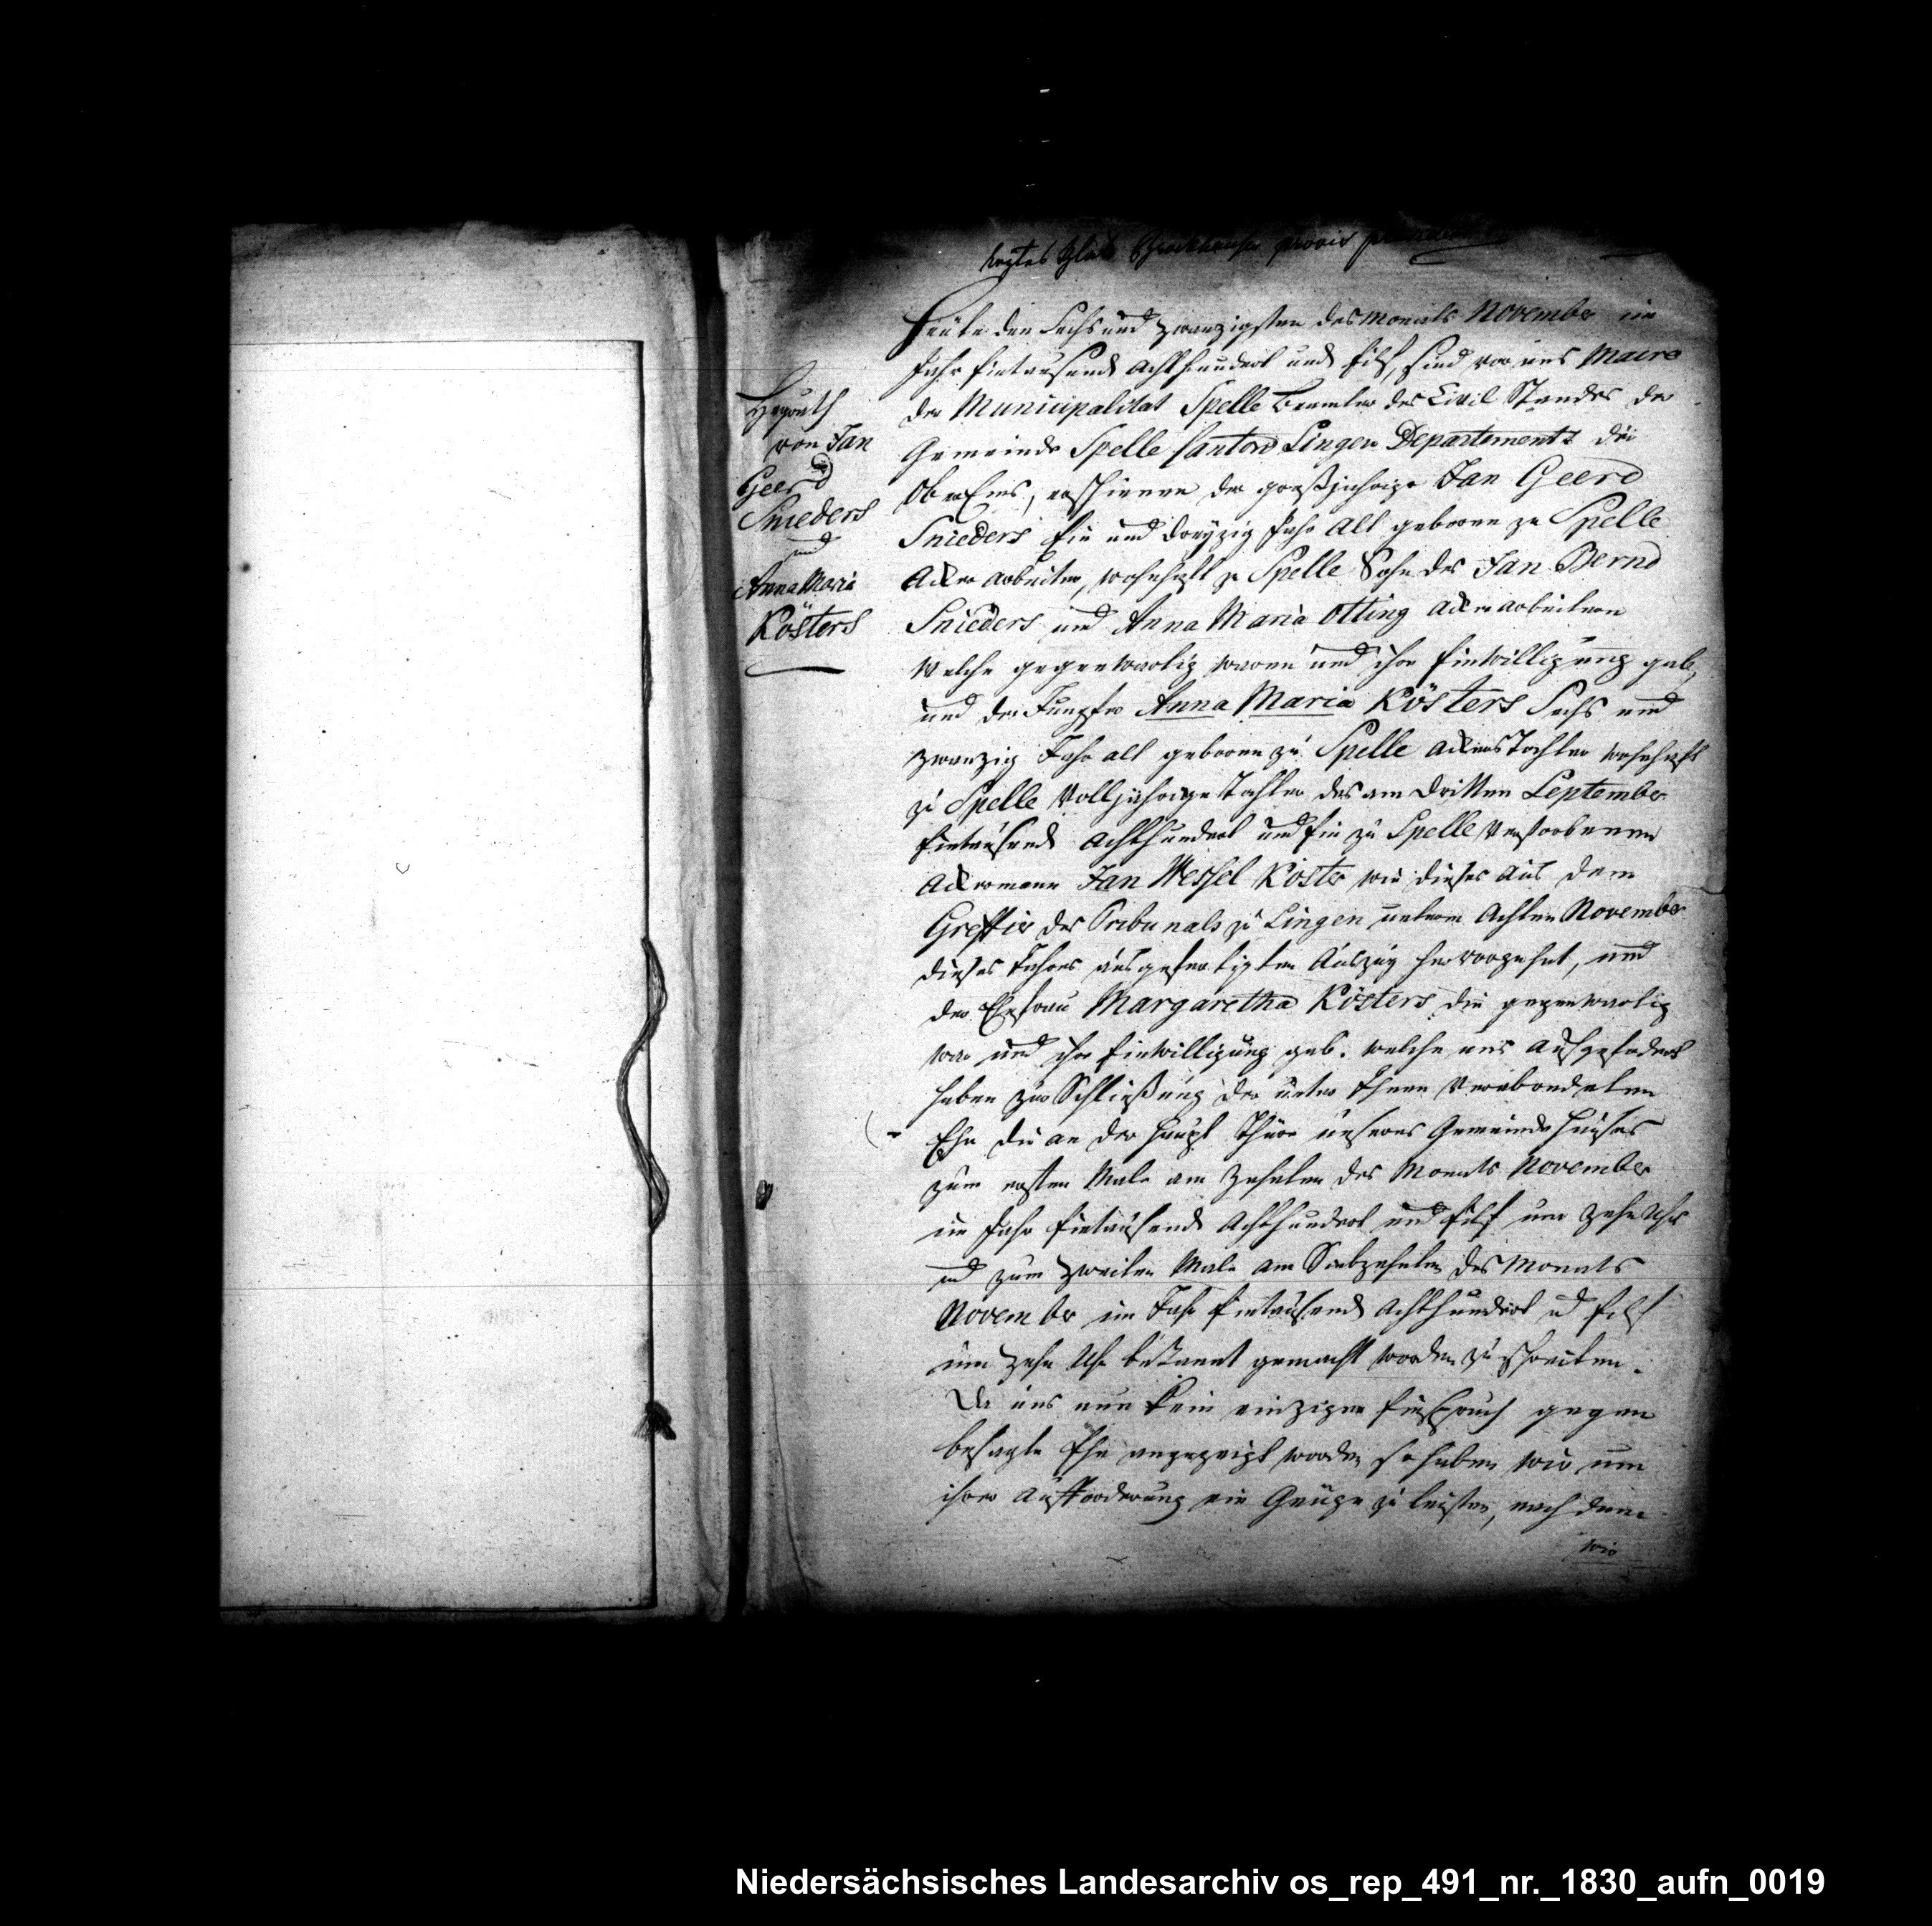 letztes Blatt
Heute den Sechs und zwanzigsten des Monats November im
Jahr Eintausend Achthundert und Eilf, sind vor uns Maire
der Municipalitat Spelle Beamter des Civil Standes der
Gemeinde Spelle Canton Lingen Departements der
Ober Ems, erschienen der großjährige Jan Geerd
Snieders Ein und dreyzig Jahr alt geboren zu Spelle
Acker arbeiter, wohnhaft zu Spelle Sohn des Jan Bernd
Snieders und Anna Maria Otting Ackerarbeitern
Welche gegenwartig waren und ihre Einwilligung gab,
und der Jungfer Anna Maria Kösters Sechs und
zwanzig Jahr alt geboren zu Spelle Ackers Tochter wohnhaft
zu Spelle Volljährige Tochter des am dritten September
Eintausend Achthundert und Ein zu Spelle Verstorbenen
Ackermann Jan Wessel Köster wie dieses aus dem
Greffier des Tribunals zu Lingen unterm Achten November
dieses Jahres ausgefertigten Auszug hervorgehet, und
der Ehefrau Margaretha Kösters die gegenwartig
war und ihre Einwilligung gab. welche uns aufgefodert
haben zur Schließung der unter Ihnen Verabredeten
Ehe die an der Haupt Thüre unseres Gemeinde Hauses
zum ersten Male am Zehnten des Monats November
im Jahr Eintausend Achthundert und Eilf um Zehn Uhr
und zum zweiten Male am Siebzehnten des Monats
November im Jahr Eintausend Achthundert und Eilf
um Zehn Uhr bekannt gemacht worden zu schreiten.
Da uns nun kein einziger Einspruch gegen
besagte Ehe angezeigt worden so haben wir um
ihrer Aufforderung ein Genüge zu leisten, nach dem
wir
Heyrath
von Jan
Geerd
Snieders
und
Anna Maria
Kösters
Niedersächsisches Landesarchiv os_rep_491_nr._1830_aufn_0019